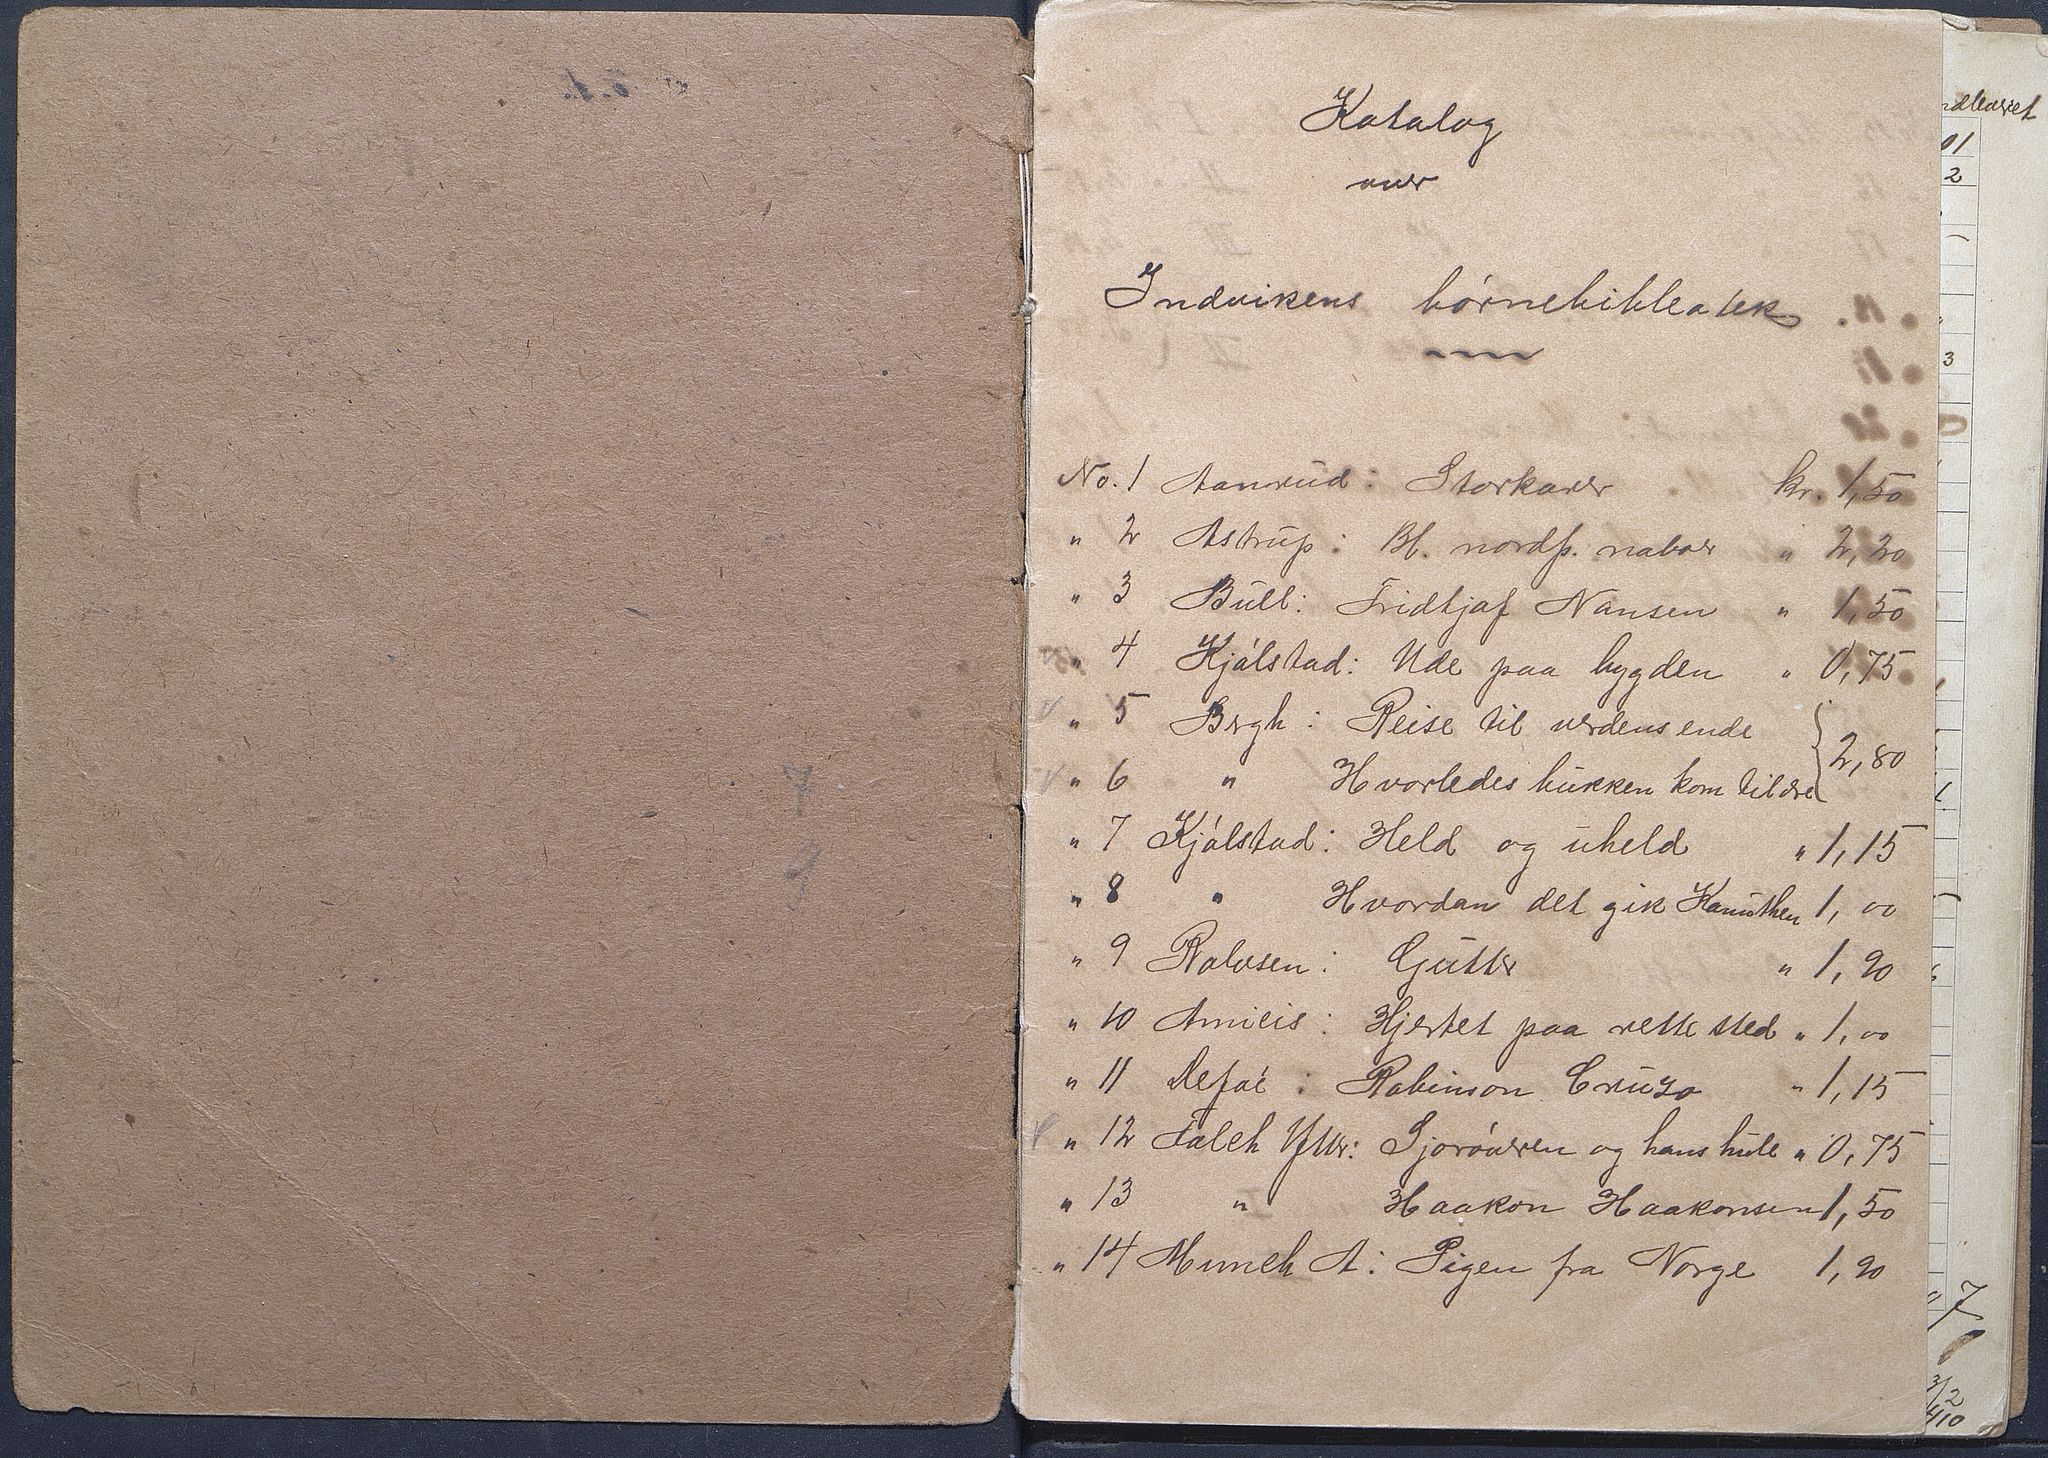 Katalog
over
Indvikens børnebibleotek
No. 1 Aanrud: Storkarer kr. 1,50
" 2 Astrup: Bl. nordp. naboer " 2,20
" 3 Bull: Fridtjof Nansen " 1,50
" 4 Kjølstad: Ude paa bygden " 0,75
" 5 Bergh: Reise til verdens ende
" 6 " Hvorledes bukken kom til ære } 2,80
" 7 Kjølstad: Held og uheld " 1,15
" 8 " Hvordan det gik Kanuthen 1,00
" 9 Rolvsen: Gutter " 1,90
" 10 Amicis: Hjertet paa rette sted " 1,00
" 11 Defoe: Robinson Cruzo " 1,15
" 12 Falch Ytter: Sjørøveren og hans hule " 0,75
" 13 " Haakon Haakonsen 1,50
" 14 Munch A: Pigen fra Norge 1,90